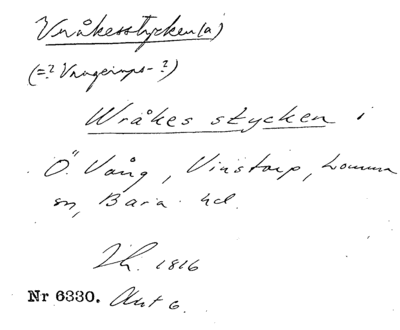 Vråkesstycken(a)
(=? Vrageryps-?)
Wråkes stycken i
Ö. Vång, Vinstorp, Lomma
sn, Bara hd.
Ih. 1816
Nr 6330. Akt 6.